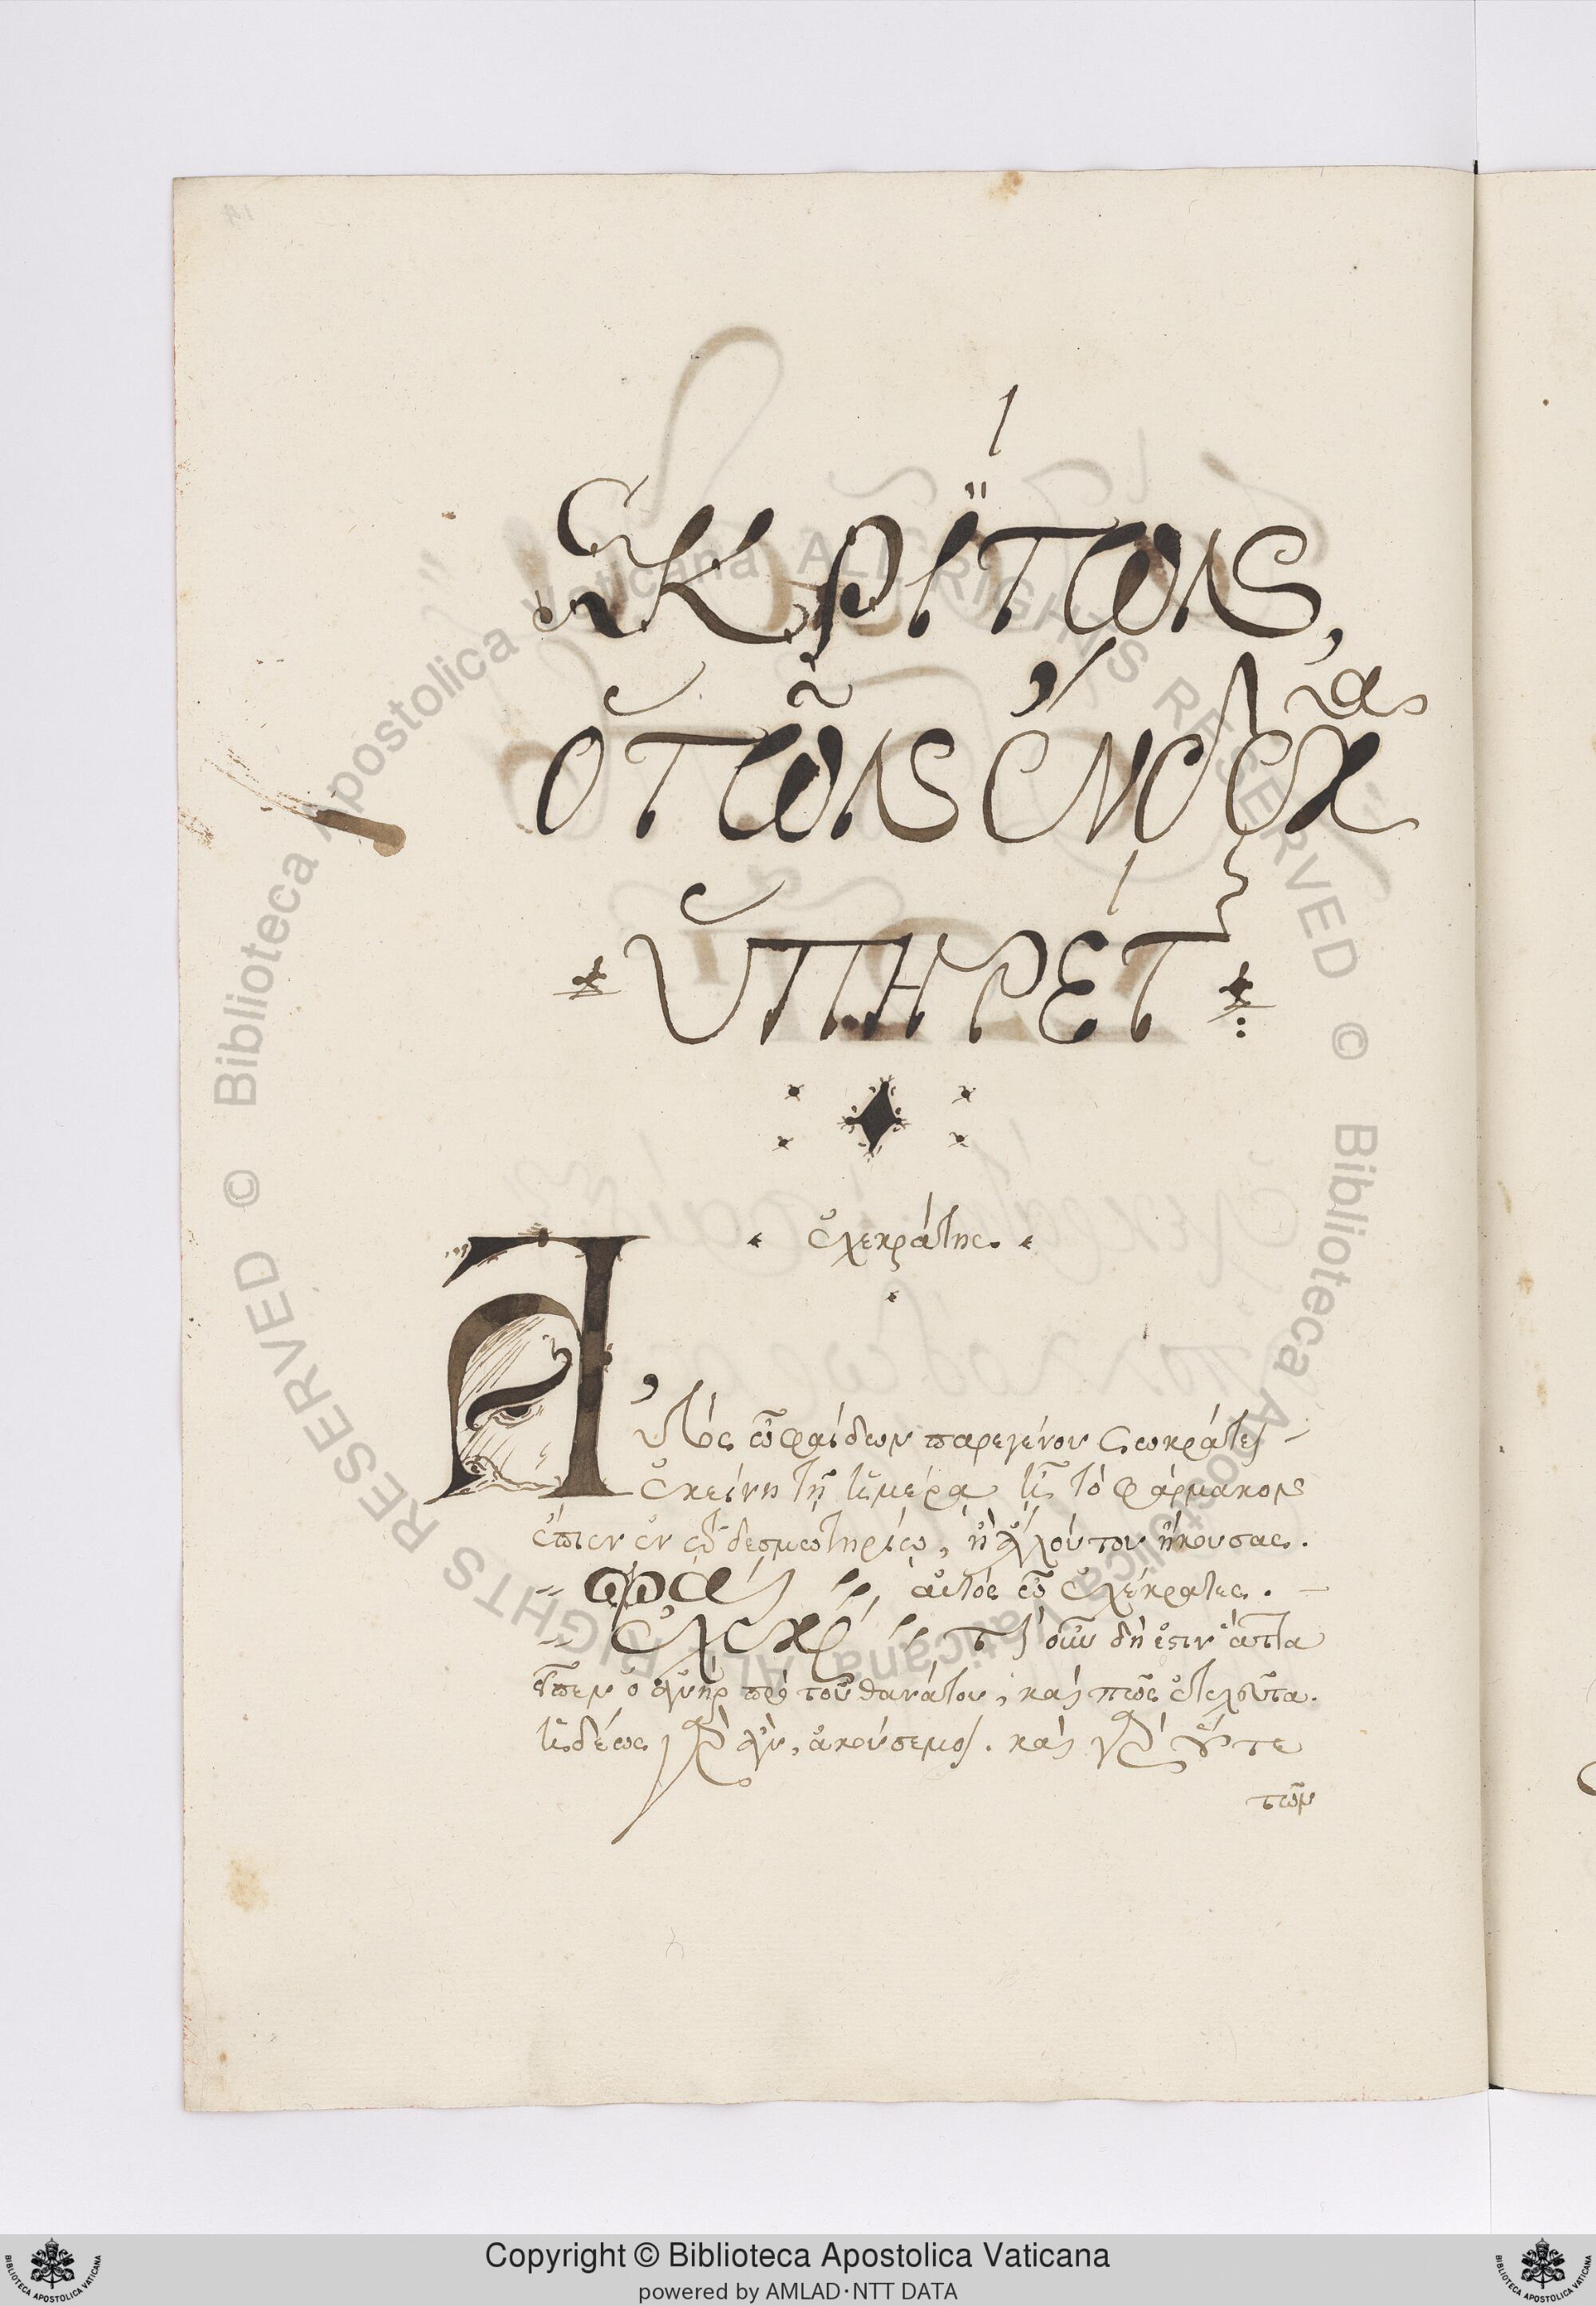 Κρίτων,
ὁ τῶν ἕνδεκα
ὑπηρέτ
Ἐχεκράτης.
Αὐτὸς ὦ φαίδων παρεγένου σωκράτει
ἐκείνῃ τῇ ἡμέρᾳ ᾗ τὸ φάρμακον
ἔπιεν ἐν τῷ δεσμωτηρίῳ, ἢ ἄλλου του ἤκουσας.
φαί αὐτὸς ὦ Ἐχέκρατες.
Ἐχεκρ τί οὖν δή ἐστιν ἅττα
εἶπεν ὁ ἀνὴρ πρὸ τοῦ θανάτου, καὶ πῶς ἐτελεύτα.
ἡδέως γὰρ ἂν, ἀκούσαιμι. καὶ γὰρ οὔτε
τῶν
Biblioteca Apostolica Vaticana ALL RIGHTS RESERVED ©
Biblioteca Apostolica Vaticana ALL RIGHTS RESERVED ©
Copyright © Biblioteca Apostolica Vaticana
powered by AMLAD·NTT DATA
BIBLIOTECA APOSTOLICA VATICANA
BIBLIOTECA APOSTOLICA VATICANA